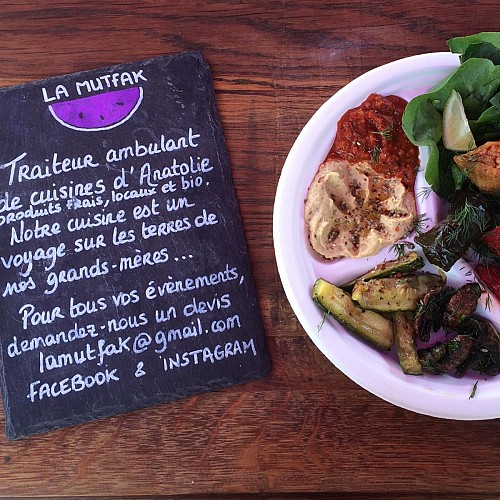 LA MUTFAK
Traiteur ambulant
de cuisines d'Anatolie
produits frais, locaux et bio.
Notre cuisine est un
voyage sur les terres de
nos grands-mères...
Pour tous vos évènements,
demandez-nous un devis
lamutfak@gmail.com
FACEBOOK & INSTAGRAM